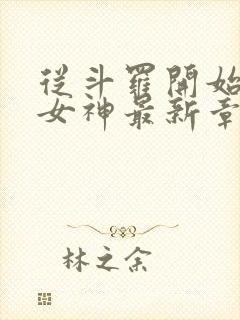 從斗羅開始
女神最新章
林之余